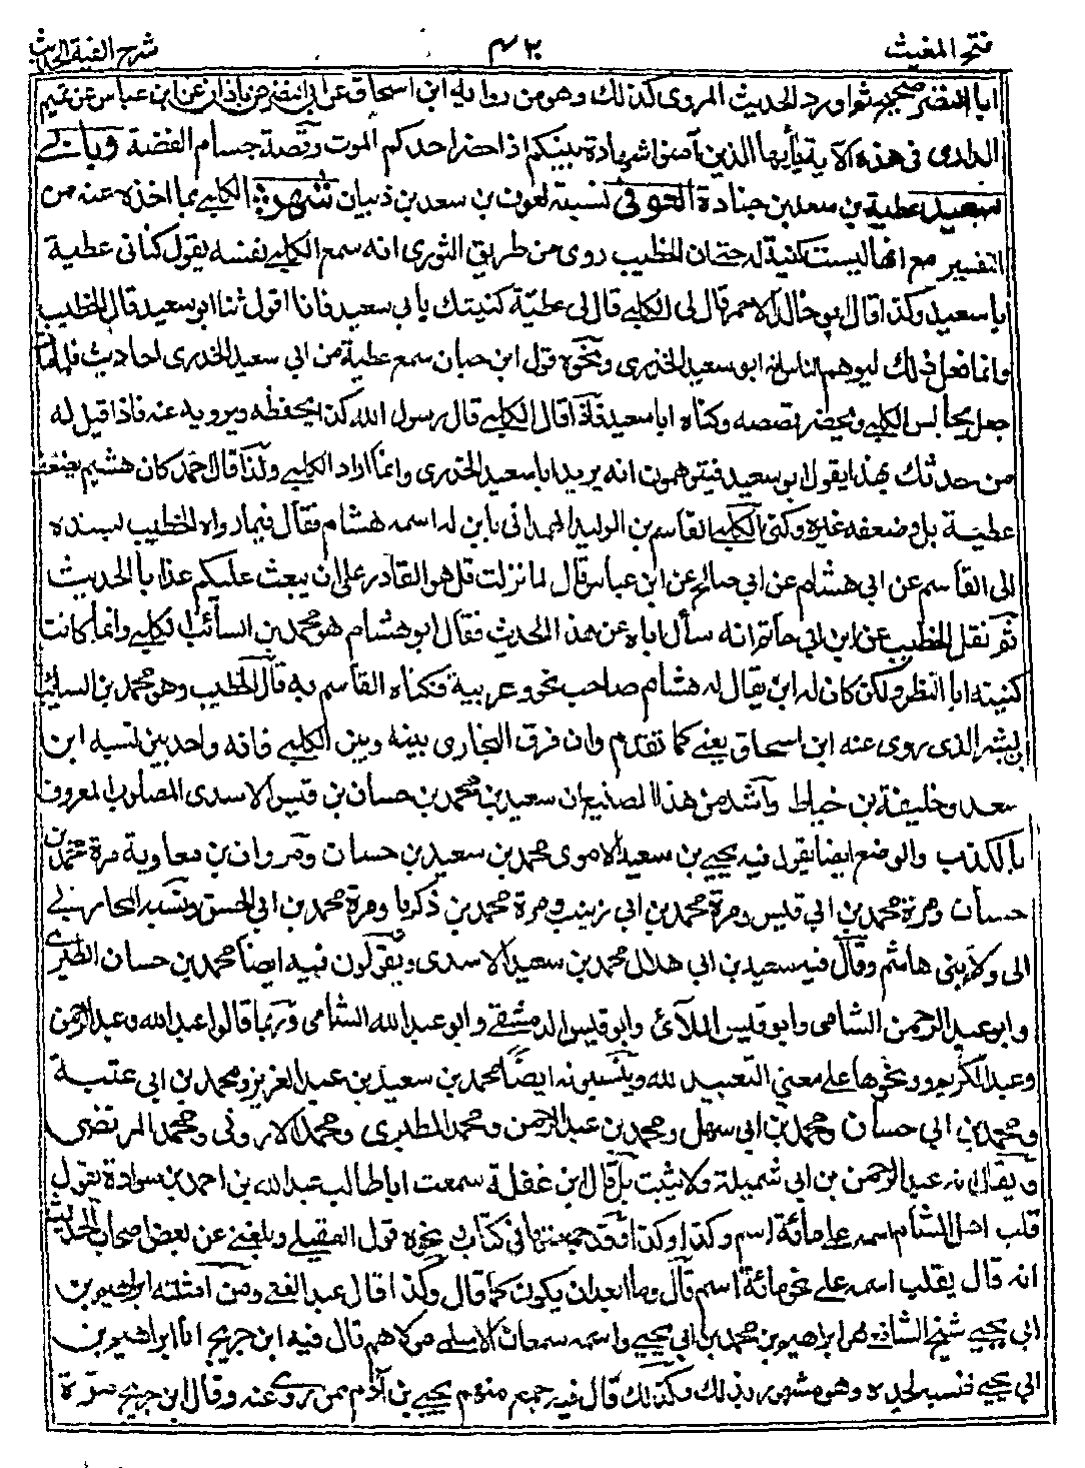 فتح المغيث ٤٣٠ شرح الفية الحديث
ابا النضر صحيح ثم اورد الحديث المروى كذلك وهو من رواية ابن اسحاق عن ابى النضر عن باذان عن ابن عباس عن تميم
الدارى فى هذه الآية يأيها الذين آمنوا شهادة بينكم اذا حضر احدكم الموت وقصة جام الفضة وبأبى
سعيد عطية بن سعد بن جنادة العوفى نسبة لعوف بن سعد بن ذبيان شهره الكلبى بما اخذه عنه من
التفسير مع انها ليست كنية له حتى ان الخطيب روى من طريق الثورى انه سمع الكلبى نفسه يقول كنانى عطية
با سعيد وكذا قال ابو خالد الاحمر قال لى الكلبى قال لى عطية كنيتك بابى سعيد فانا اقول ثنا ابو سعيد قال الخطيب
وانما فعل ذلك ليوهم الناس انه ابو سعيد الخدرى ونحوه قول ابن حبان سمع عطية من ابى سعيد الخدرى احاديث فلما مات
جعل يجالس الكلبى ويحضر بقصصه وكناه ابا سعيد فاذا قال الكلبى قال رسول الله كذا يحفظه ويرويه عنه فاذا قيل له
من حدثك بهذا يقول ابو سعيد فيتوهمون انه يريد ابا سعيد الخدرى وانما اراد الكلبى ولذا قال احمد كان هشيم يضعف
عطية بل وضعفه غيره وكنى الكلبى القاسم بن الوليد الهمدانى بابن له اسمه هشام فقال فيما رواه الخطيب بسنده
الى القاسم عن ابى هشام عن ابى صالح عن ابن عباس قال لما نزلت قل هو القادر على ان يبعث عليكم عذابا الحديث
ثم نقل الخطيب عن ابن ابى حاتم انه سأل اباه عن هذا الحديث فقال ابو هشام هو محمد بن السائب الكلبى وانما كانت
كنيته ابا النظر ولكن كان له ابن يقال له هشام صاحب نحو وعربية فكناه القاسم به قال الخطيب وهو محمد بن السائب
ابن بشر الذى روى عنه ابن اسحاق يعنى كما تقدم وان فرق البخارى بينه وبين الكلبى فانه واحد بين نسبه ابن
سعد وخليفة بن خياط واشد من هذا الصنيع ان سعيد بن محمد بن حسان بن قيس الاسدى المصلوب المعروف
بالكذب والوضع ايضا يقول فيه يحيى بن سعيد الاموى محمد بن سعيد بن حسان ومروان بن معاوية مرة محمد بن
حسان ومرة محمد بن ابى قيس ومرة محمد بن ابى زينب ومرة محمد بن زكريا ومرة محمد بن ابى الحسن ونسبه المحاربى
الى ولاء بنى هاشم وقال فيه سعيد بن ابى هلال محمد بن سعيد الاسدى ويقولون فيه ايضا محمد بن حسان الطبرى
وابو عبد الرحمن الشامى وابو قيس الملائى وابو قيس الدمشقى وابو عبد الله الشامى وربما قالوا عبد الله وعبد الرحمن
وعبد الكريم ونحوها على معنى التعبيد لله وينسبونه ايضا محمد بن سعيد بن عبد العزيز ومحمد بن ابى عتبة
ومحمد بن ابى حسان ومحمد بن ابى سهل ومحمد بن عبد الرحمن ومحمد الطبرى ومحمد الاردنى ومحمد المرتضى
ويقال انه عبد الرحمن بن ابى شميلة ولا يثبت بل قال ابن عقدة سمعت ابا طالب عبد الله بن احمد بن سوادة يقول
قلب اهل الشام اسمه على مائة اسم وكذا وكذا قد جمعتها فى كتاب ونحوه قول العقيلى وبلغنى عن بعض اصحاب الحديث
انه قال يقلب اسمه على نحو مائة اسم قال وما ابعد ان يكون كما قال وكذا قال عبد الغنى ومن امثلته ابراهيم بن
ابى يحيى شيخ الشافعى هو ابراهيم بن محمد بن ابى يحيى واسمه سمعان الاسلمى مولاهم قال فيه ابن جريج انا ابراهيم بن
ابى يحيى فنسبه لجده وهو مشهور بذلك وكذلك قال فيه جمع منهم يحيى بن آدم ممن روى عنه وقال ابن جريج مرة